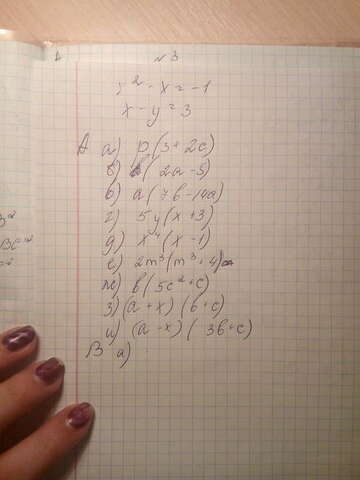 №3
² - x = -1
x - y = 3
А а) p(3+2c)
б) b(2a-5)
в) a(7b-14a)
г) 5y(x+3)
д) x⁴(x-1)
е) 2m³(m³+4)
ж) b(5c²+c)
з) (a+x)(b+c)
и) (a-x)(3b+c)
В а)